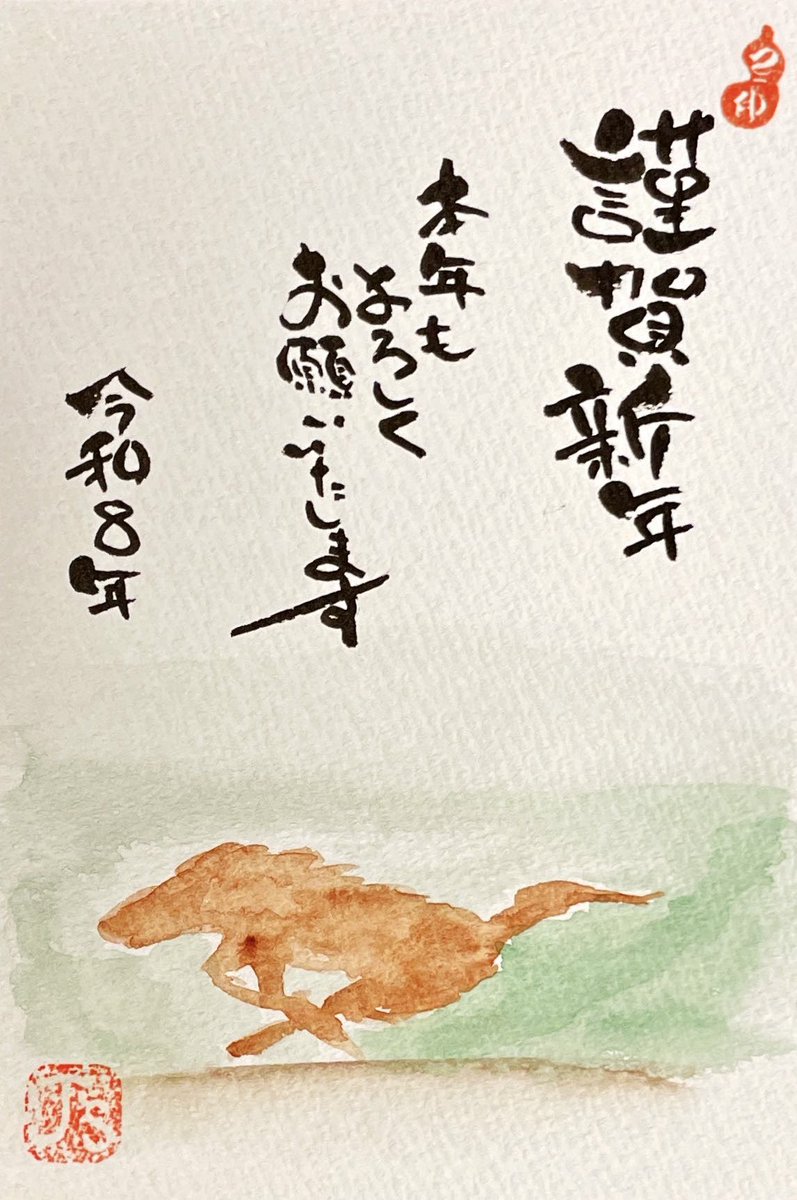 謹賀新年
本年も
よろしく
お願いいたします
令和8年